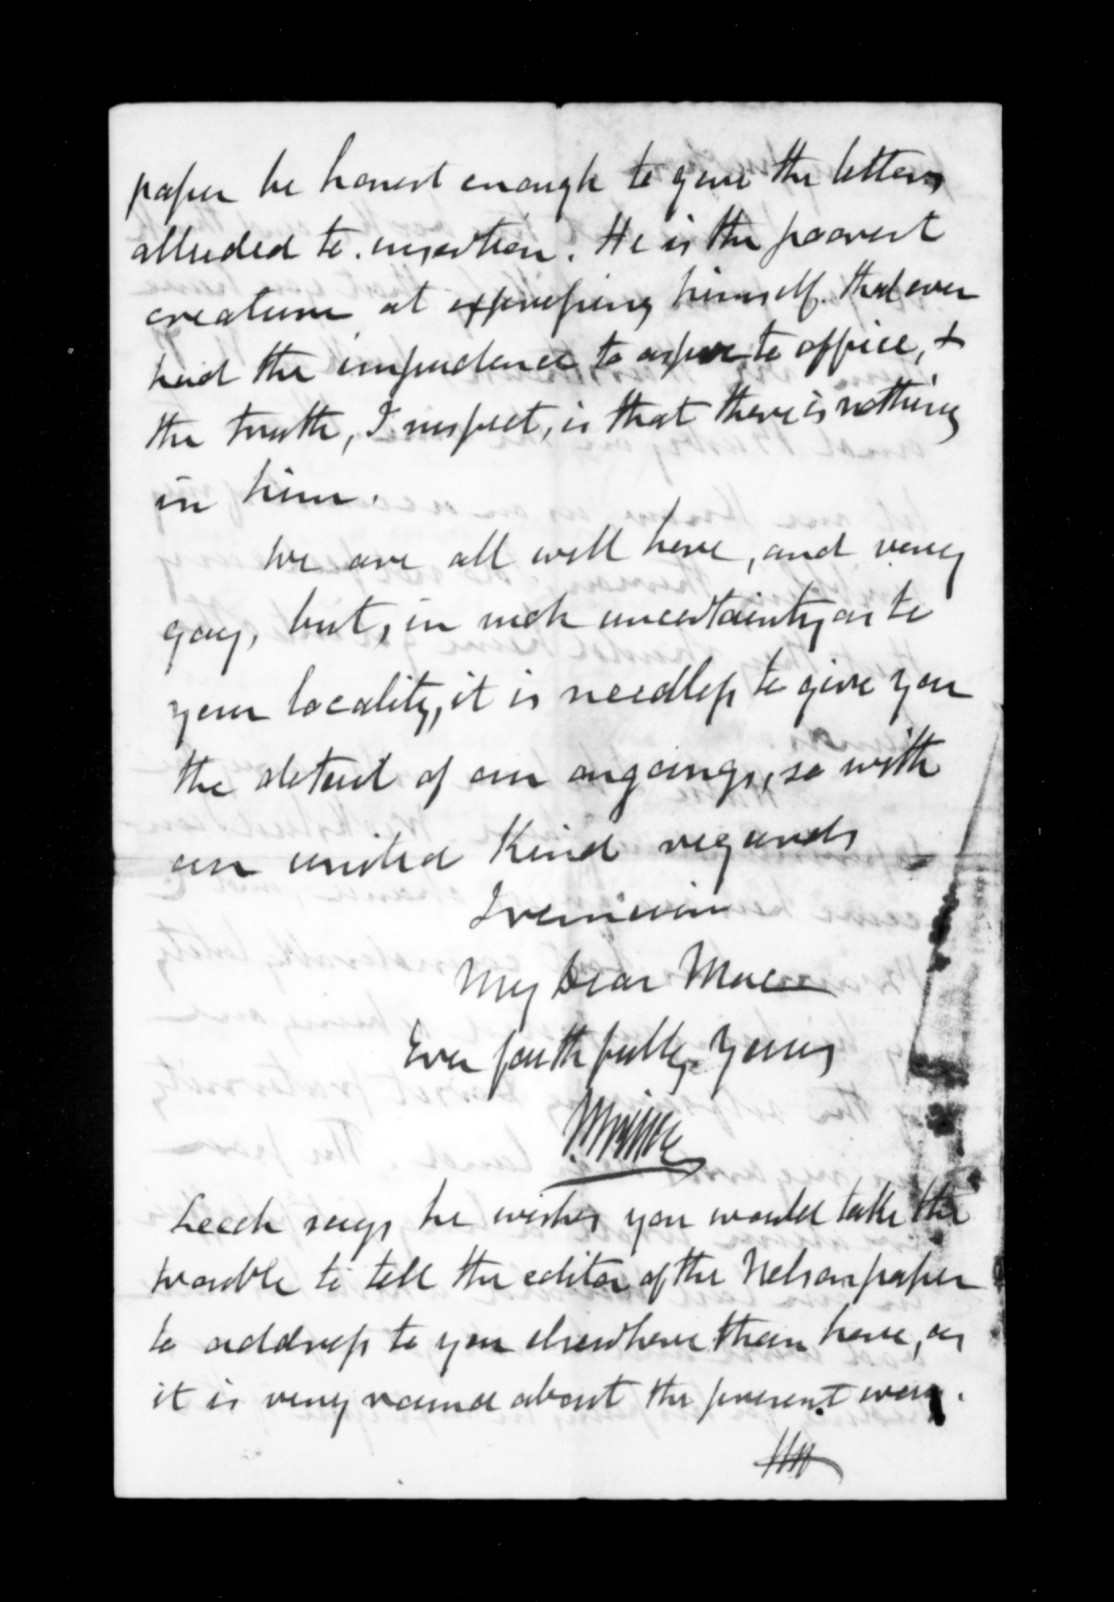 paper be honest enough to give the letters
alluded to insertion. He is the poorest
creature at expressing himself that ever
had the impudence to aspire to office, &
the truth, I suspect, is that there is nothing
in him.
We are all well here, and very
gay, but, in such uncertainty as to
your locality, it is needless to give you
the detail of our ongoings, so with
our united Kind regards
I remain
My Dear Mac
Ever faithfully Yours
Leech says he wishes you would take the
trouble to tell the editor of the Nelson paper
to address to you elsewhere than here, as
it is very round about the present way.